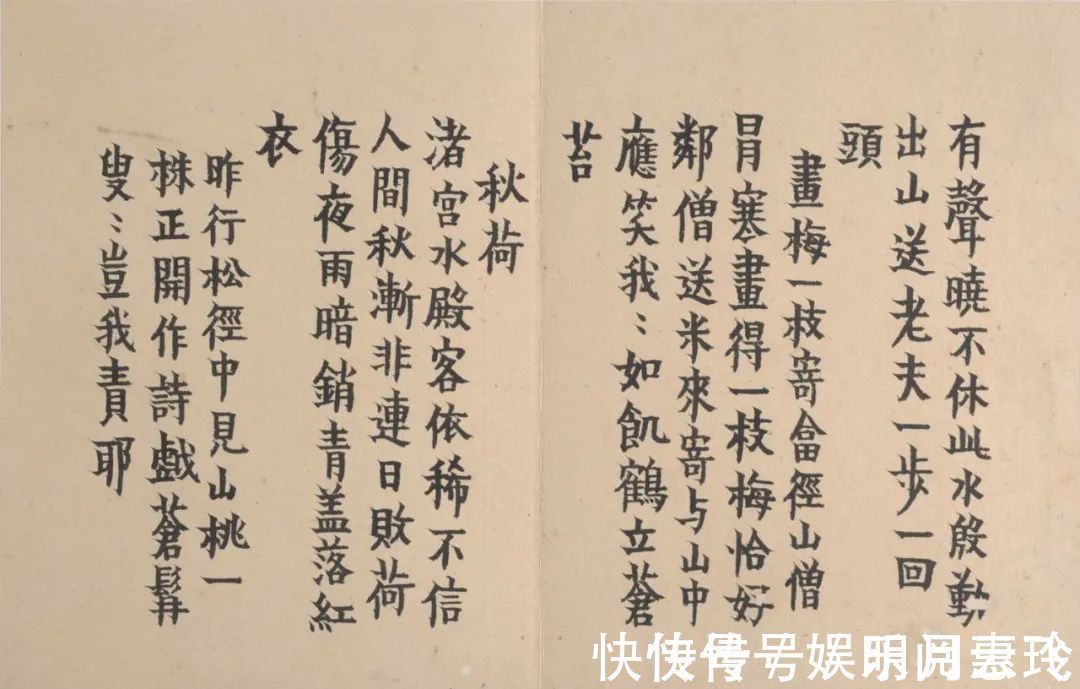 有聲曉不休此水殷勤
出山送老夫一步一回
頭
畫梅一枝寄畣徑山僧
冐寒畫得一枝梅恰好
鄰僧送米來寄与山中
應笑我〻如飢鶴立蒼
苔
秋荷
渚宮水殿客依稀不信
人間秋漸非連日敗荷
傷夜雨暗銷青盖落紅
衣
昨行松徑中見山桃一
株正開作詩戲蒼髯
叟〻豈我責耶